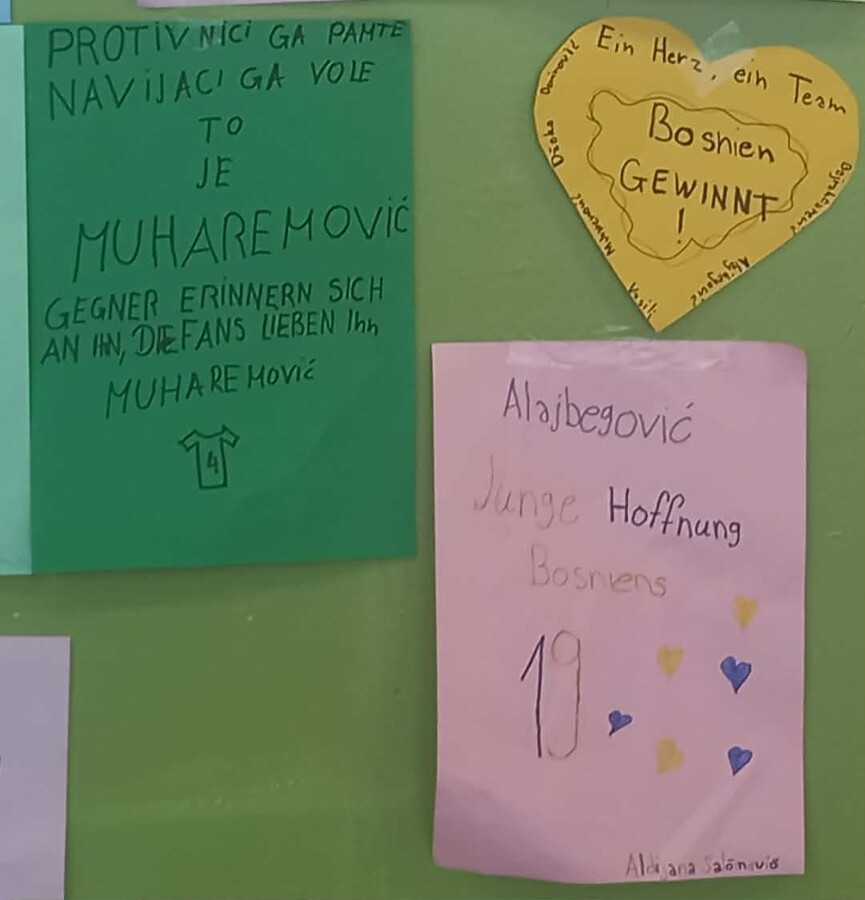 PROTIVNICI GA PAMTE
NAVIJACI GA VOLE
TO
JE
MUHAREMOVIĆ
GEGNER ERINNERN SICH
AN IHN, DIE FANS LIEBEN Ihn
MUHAREMović
4
Ein Herz, ein Team
Bosnien
GEWINNT
!
Džeko
Muharemović
Vasilj
Alajbegović
Alajbegović
Junge Hoffnung
Bosniens
19
Aldijana